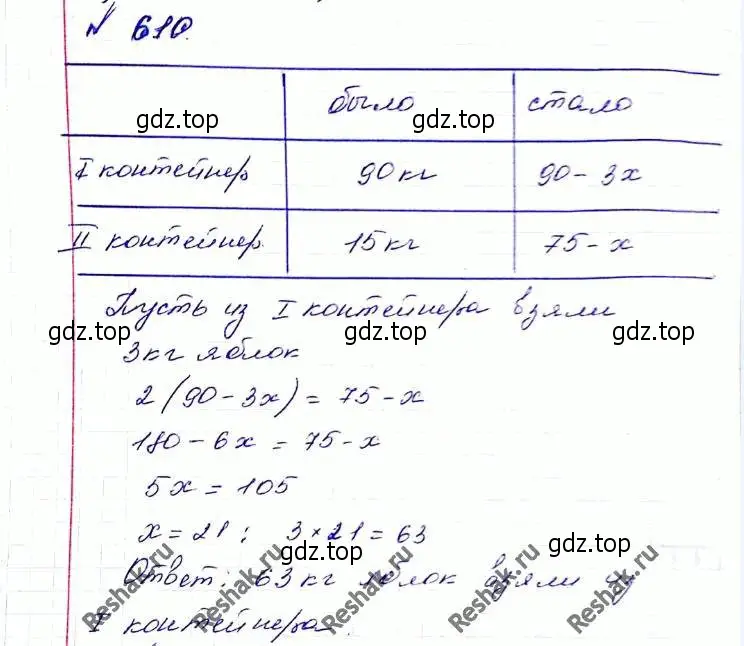 № 610.
было стало
I контейнер 90 кг 90 - 3x
II контейнер 15 кг 75 - x
Пусть из I контейнера взяли
3 кг яблок
2 (90 - 3x) = 75 - x
180 - 6x = 75 - x
5x = 105
x = 21 ; 3 × 21 = 63
Ответ: 63 кг яблок взяли из
I контейнера.
gdz.top
gdz.top
gdz.top
gdz.top
gdz.top
gdz.top
gdz.top
gdz.top
Reshak.ru
Reshak.ru
Reshak.ru
Reshak.ru
Reshak.ru